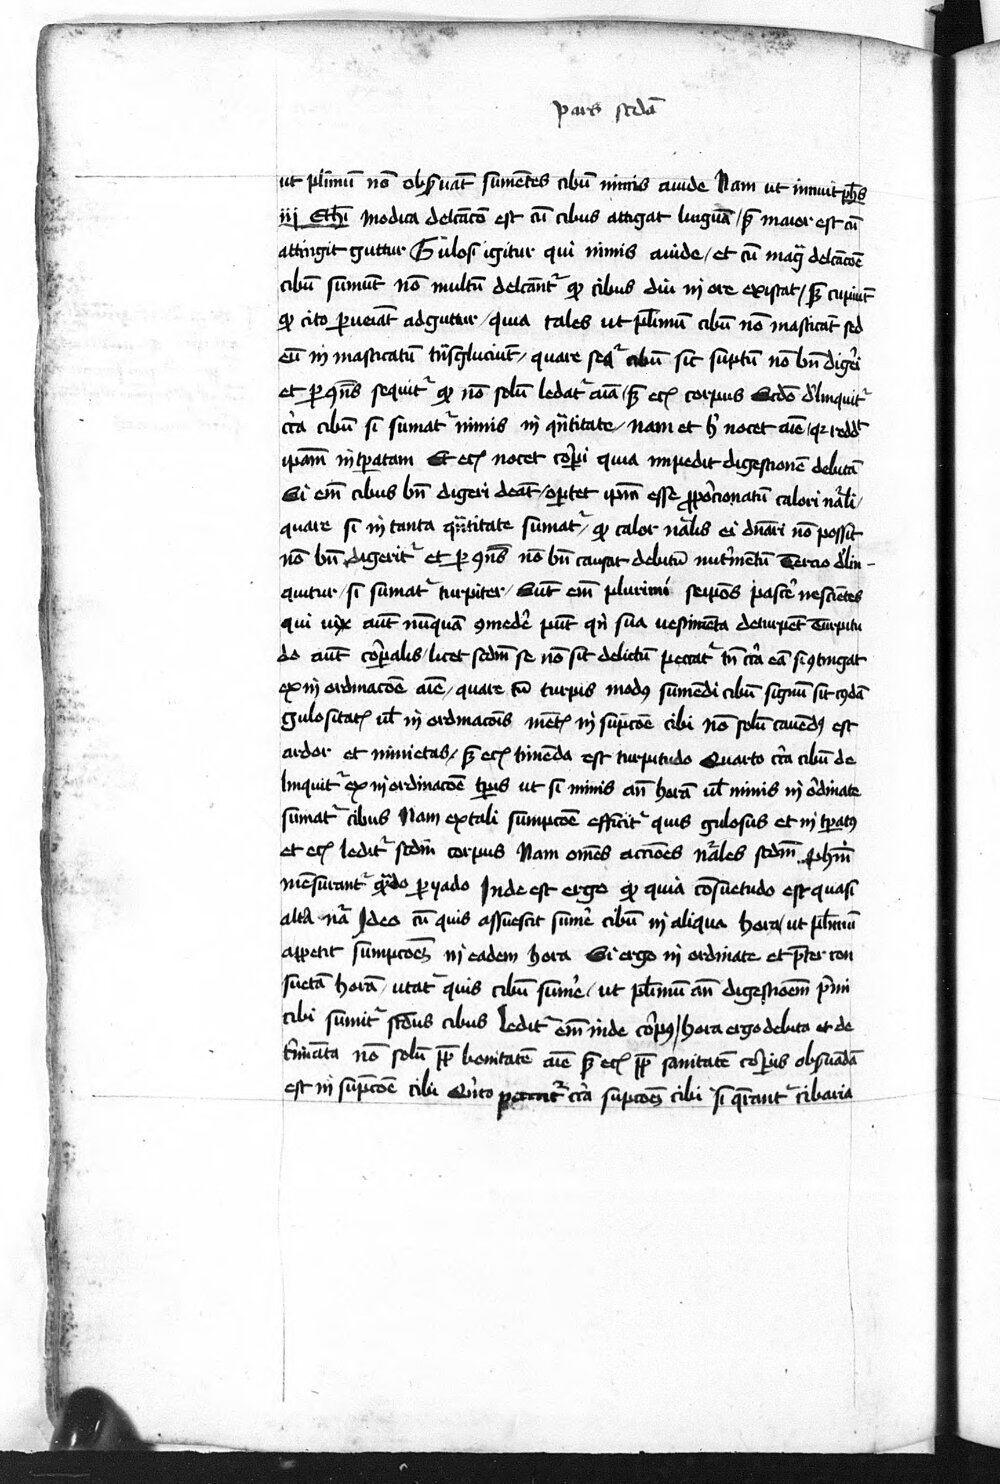 Pars scd̄a
ut plīmū nō obs̄uāt sumētes cibū nimis auide Nam ut innuit ph̄s
iij Eth̄i modica delc̄acō est cū cibus attigat linguā / s̄ maior est cū
attingit guttur Gulosi igitur qui nimis auide / et cū maḡ delc̄acōe
cibū sumūt nō multū delc̄ant᷑ ꝙ cibus diu in ore existat / s̄ cupiūt
ꝙ cito ꝑueiāt ad guttur / quia tales ut plīmū cibū nō masticāt sed
eū in masticatū trāsgluciūt / quare seq᷑ cibū sic sūptū nō bn̄ dig̾i
et ꝑ ꝯn̄s sequit᷑ ꝙ nō solū ledat᷑ aīa / s̄ ecꝫ corpus Scd̄o d̾linquit᷑
cc̄a cibū si sumat᷑ nimis in qn̄titate / nam et h̾ nocet aīe / qꝛ redd᷑
ip̄am intp̄atam Et ecꝫ nocet corp̄i quia impedit digestionē debitā
Si em̄ cibus bn̄ digeri deāt / oꝑtet ip̄m esse ꝓporcionatū calori nāli /
quare si in tanta qn̄titate sumat᷑ / ꝙ calor nālis ei dn̄ari nō possit
nō bn̄ digerit᷑ et ꝑ ꝯn̄s nō bn̄ causat debitū nut̾mētū Tercio d̾lin-
quitur / si sumat᷑ turpiter / Sūt em̄ plurimi seip̄os pasc̾e nesciētes
qui vix aut nūquā ꝯmed̾e pn̄t qn̄ sua vestimēta deturpēt Turpitu
do aūt corꝑalis / licet scdm̄ se nō sit delictū peccat᷑ tn̄ cc̄a eā si ꝯtingat
ex in ordinacōe aīe / quare cū turpis modꝰ sumēdi cibū signū sit cꝰdā
gulositatꝫ ul̄ in ordinacōis mētꝫ in sūpcōe cibi nō solū cauēdꝰ est
ardor et nimietas / s̄ ecꝫ timēda est turpitudo Quarto cc̄a cibū de
linquit᷑ ex in ordinacōe tp̄is ut si nimis an̄ horā ul̄ nimis in ordinate
sumat᷑ cibus Nam ex tali sumpcōe efficit᷑ quis gulosus et intp̄atꝰ
et ecꝫ ledit᷑ scdm̄ corpus Nam om̄es acciōes nāles scdm̄ ph̄m
mēsurant᷑ qd̄o ꝑyado Inde est ergo ꝙ quia cōsuetudo est quasi
alt̾a nā Ideo cū quis assuescit sum̾e cibū in aliqua hora / ut plīmū
appetit sumpcōeꝫ in eadem hora Si ergo in ordinate et p̄ter con
suetā horā / utat᷑ quis cibū sum̾e / ut plīmū an̄ digestiōem p̾mi
cibi sumit᷑ scd̄us cibus Ledit᷑ em̄ inde corpꝰ / hora ergo debita et de
t̾miata nō solū ꝓp̄ bonitatē aīe s̄ ecꝫ ꝓp̄ sanitatē corꝑis obs̄uādā
est in sūpcōe cibi Qn̄to peccat᷑ cc̄a sūpcōeꝫ cibi si q̄rant᷑ cibaria